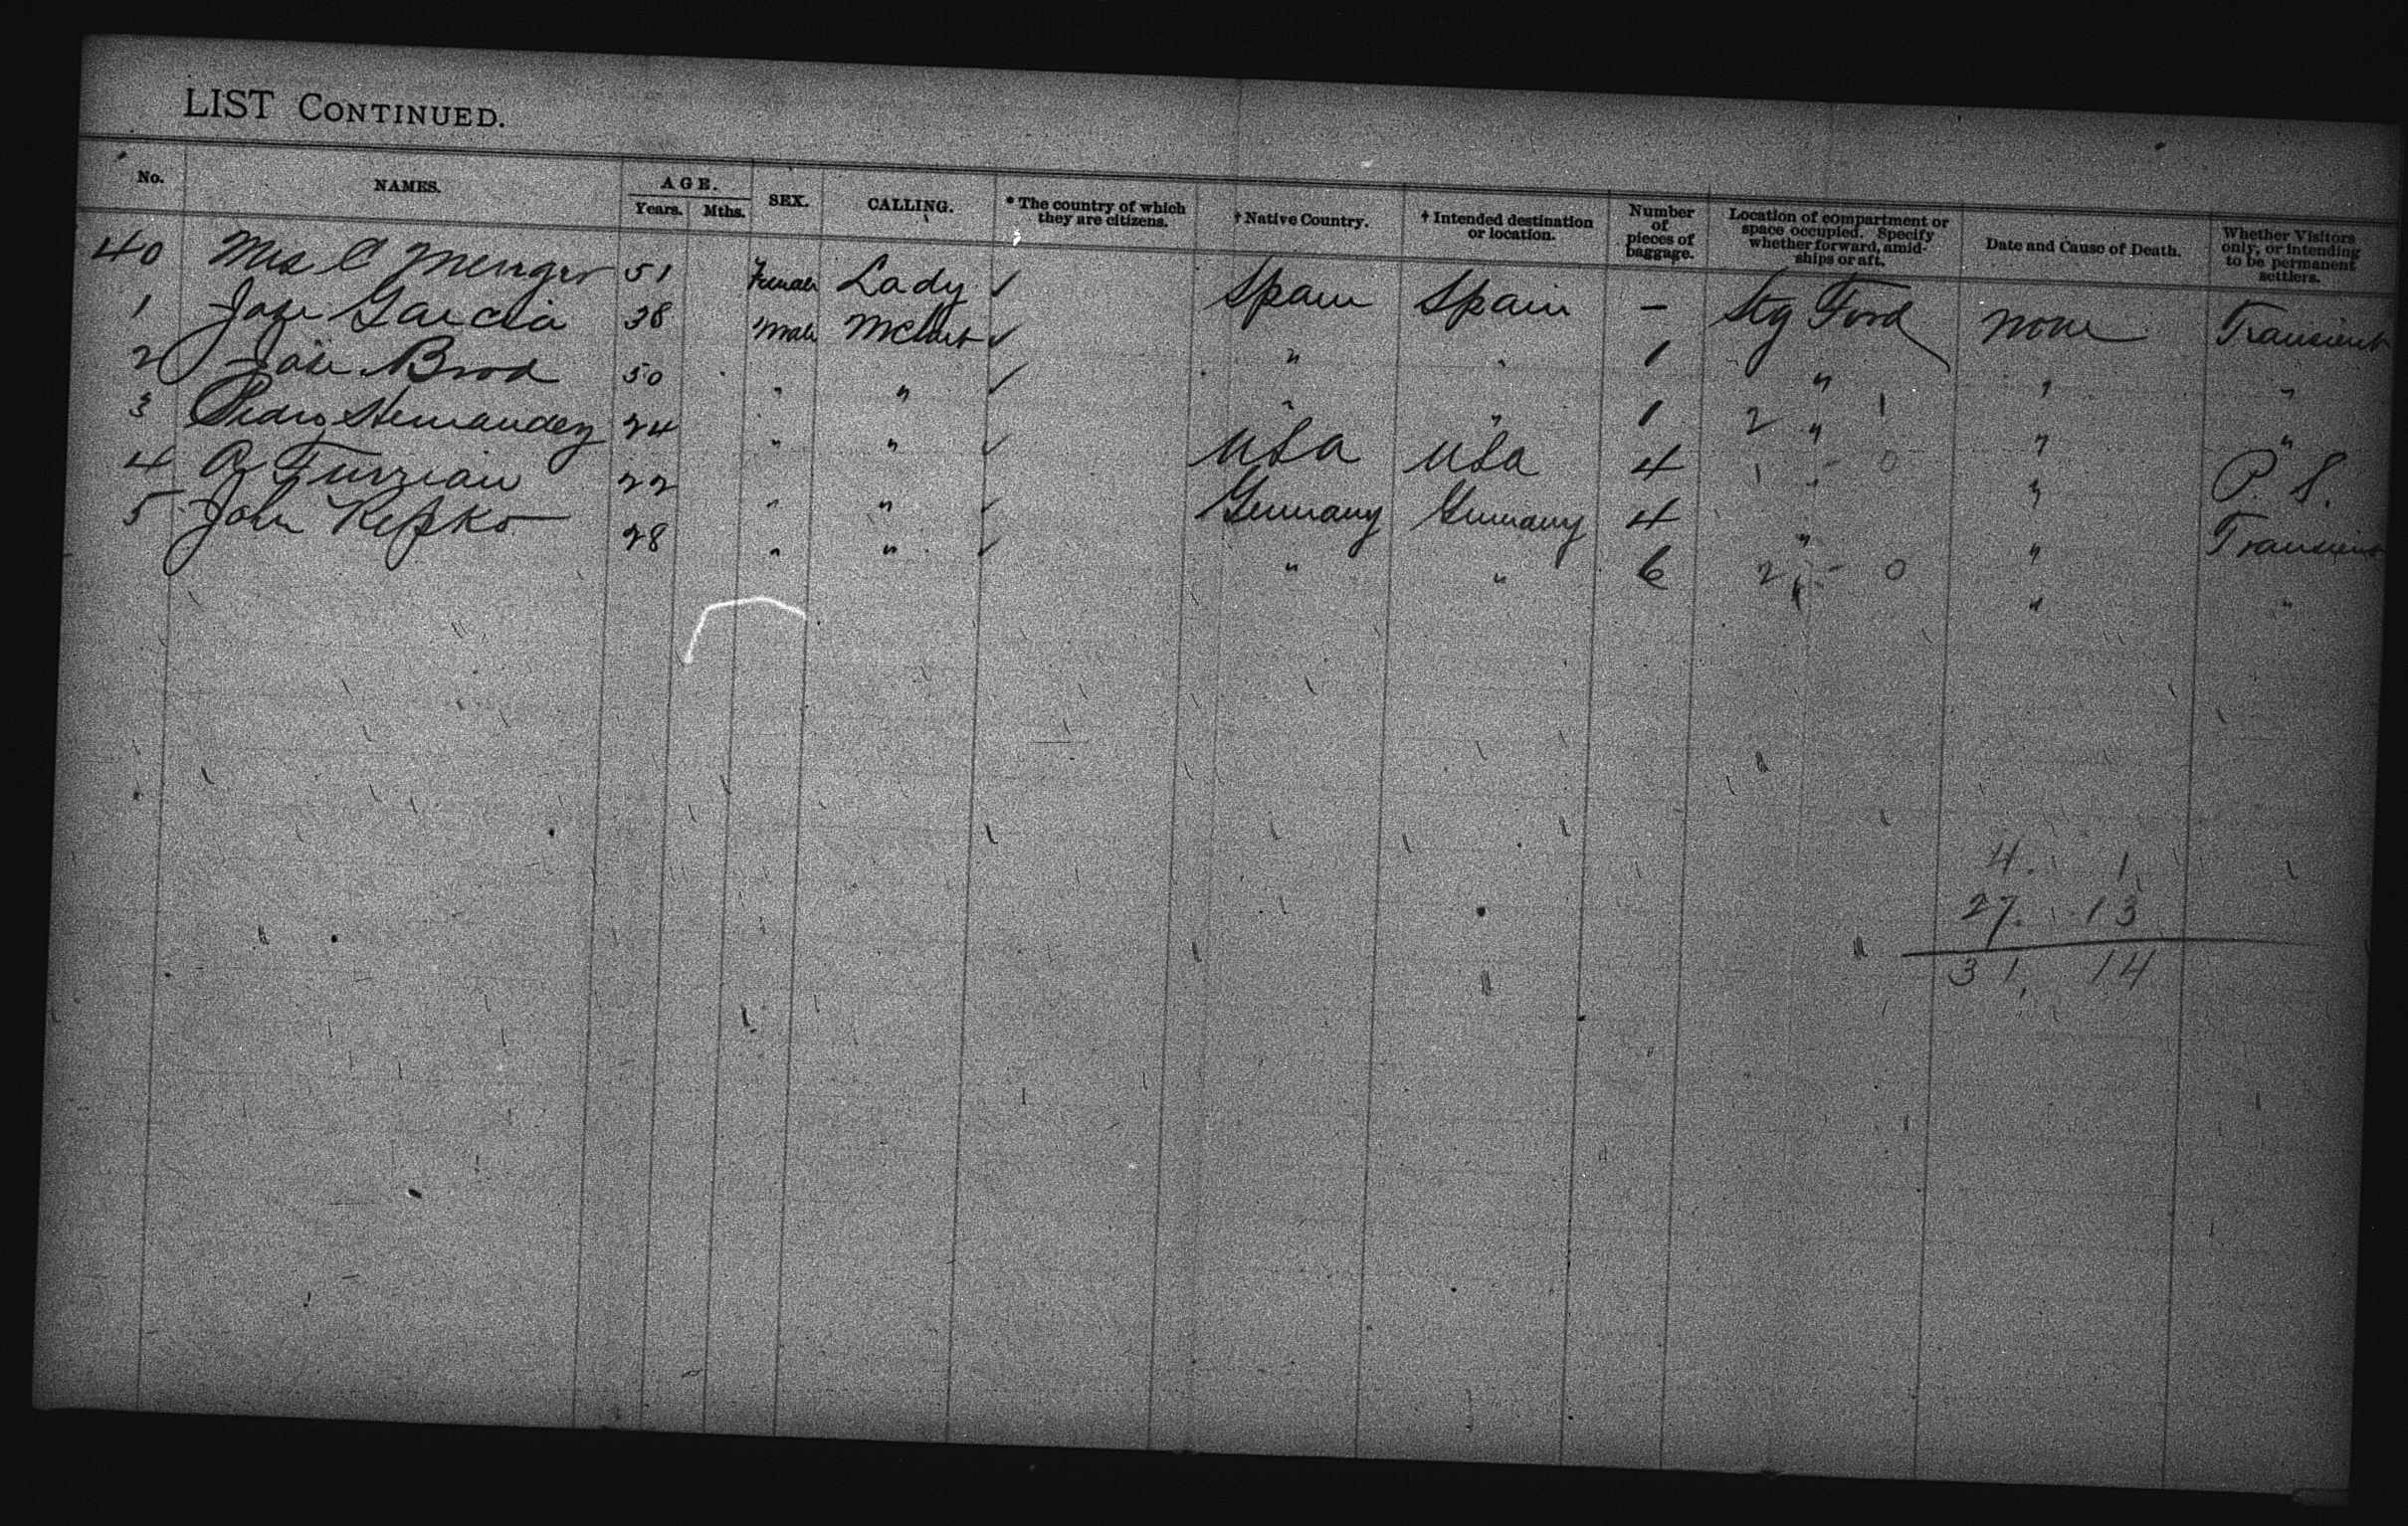 LIST CONTINUED.
No. NAMES. AGE. Years. Mths. SEX. CALLING. * The country of which they are citizens. † Native Country. † Intended destination or location. Number of pieces of baggage. Location of compartment or space occupied. Specify whether forward, amidships or aft. Date and Cause of Death. Whether Visitors only, or intending to be permanent settlers.
40 Mrs C 51 Female Lady ✓ Spain Spain - Stg Ford none Transient
1 Jose Garcia 38 Male ✓ " " 1 " " "
2 Jose Brod 50 " " ✓ " " 1 2 " 1 " "
3 Pedro Hernandez 24 " " ✓ USA USA 4 1 - 0 " P. S.
4 22 " " ✓ Germany Germany 4 " " Transient
5 John 28 " " ✓ " " 6 2 - 0 " "
4. 1
27. 13
31, 14